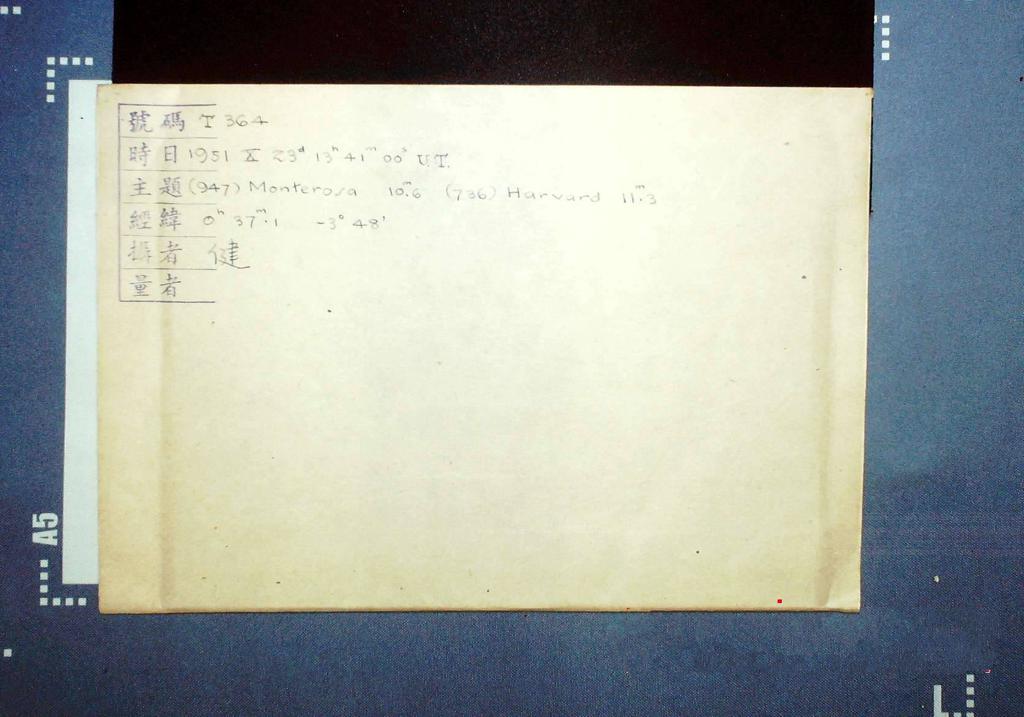 號碼 T 364
時日 1951 X 23ᵈ 13ʰ 41ᵐ 00ˢ U.T.
主題 (947) Monterosa 10ᵐ.6 (736) Harvard 11ᵐ.3
經緯 0ʰ 37ᵐ.1 -3° 48'
攝者 健
量者
A5